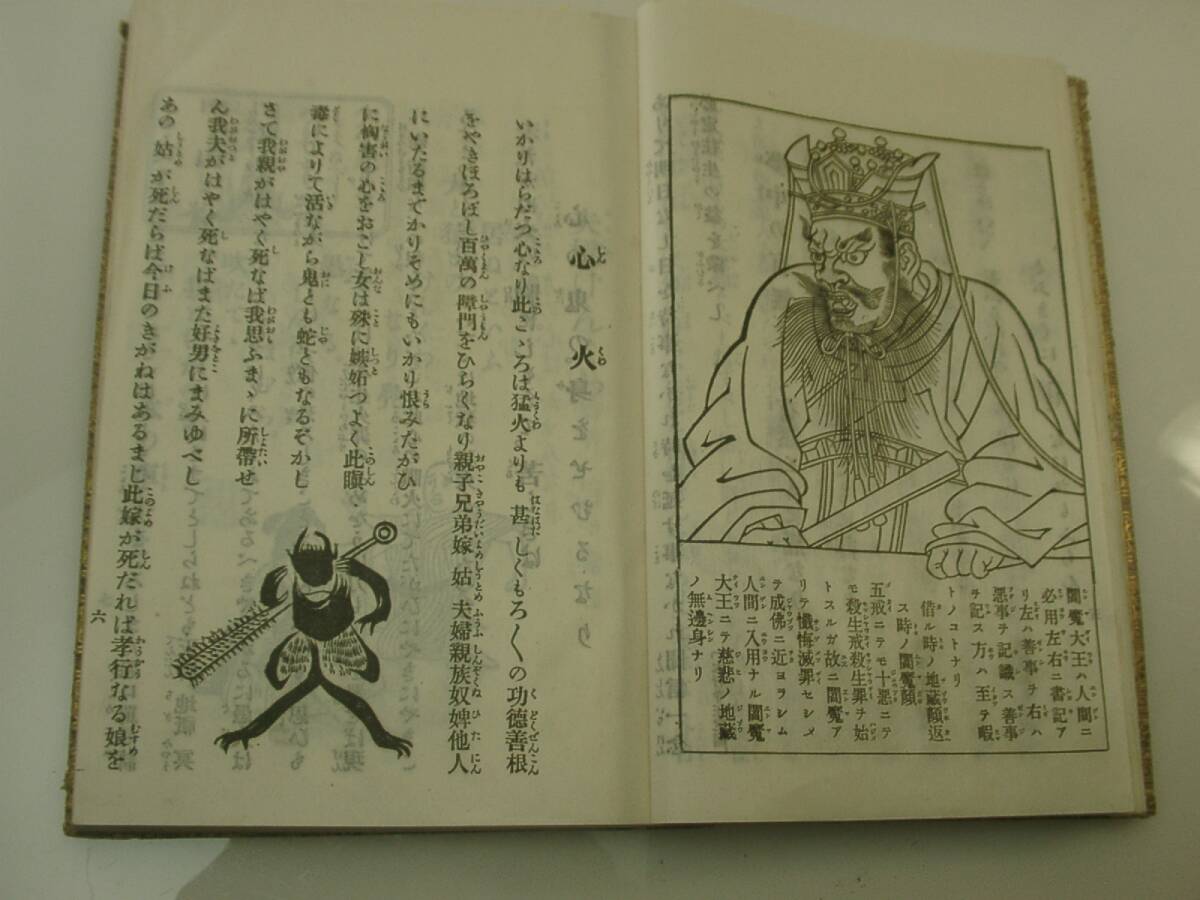 閻魔大王ハ人間ニ
必用左右ニ書記ア
リ左ハ善事ヲ右ハ
悪事ヲ記識ス善事
ヲ記ス方ハ至テ暇
トノコトナリ
借ル時ノ地蔵顔返
ス時ノ閻魔顔
五戒ニテモ十悪ニテ
モ殺生戒殺生罪ヲ始
トスルガ故ニ閻魔ア
リテ懺悔滅罪セシメ
テ成佛ニ近ヨラシム
人間ニ入用ナル閻魔
大王ニテ慈悲ノ地蔵
ノ無邊身ナリ
心火
いかりはらだつ心なり此こゝろは猛火よりも甚しくもろ〳〵の功徳善根
をやきほろぼし百萬の障門をひらくなり親子兄弟嫁姑夫婦親族奴婢他人
にいたるまでかりそめにもいかり恨みたがひ
に悩害の心をおこし女は殊に嫉妬つよく此瞋
毒によりて活ながら鬼とも蛇ともなるぞかし
さて我親がはやく死なば我思ふまゝに所帶せ
ん我夫がはやく死なばまた好男にまみゆべし
あの姑が死だらば今日のきがねはあるまじ此嫁が死だれば孝行なる娘を
六